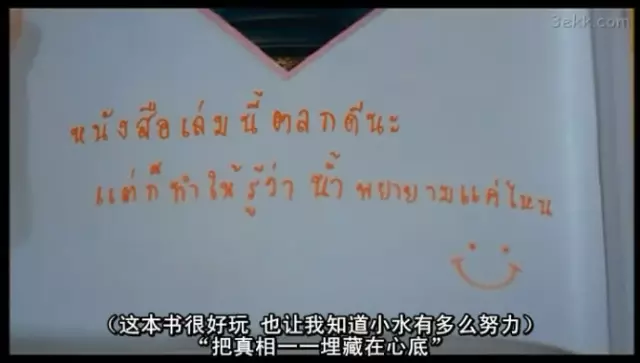 3ekk.com
หนังสือเล่มนี้ตลกดีนะ
แต่ก็ทำให้รู้ว่า น้ำ พยายามแค่ไหน
（这本书很好玩 也让我知道小水有多么努力）
“把真相——埋藏在心底”